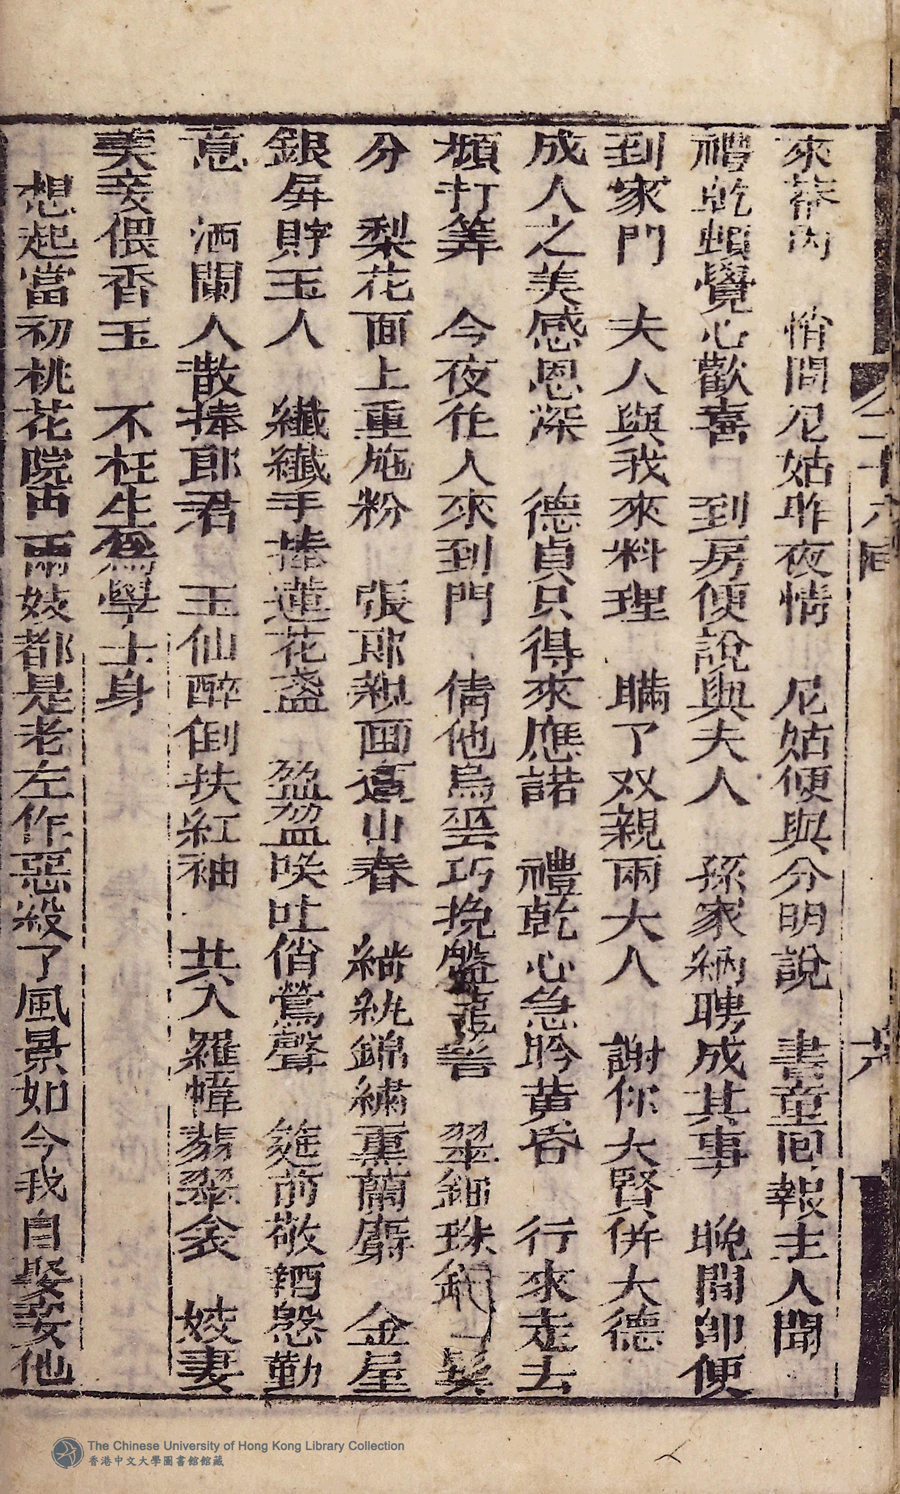 二十六回
來菴内　悄問尼姑昨夜情　尼姑便與分明說　書童囘報主人聞
禮乾頓覺心歡喜　到房便說與夫人　孫家納聘成其事　晚間卽便
到家門　夫人與我來料理　瞞了双親兩大人　謝你大賢併大德
成人之美感恩深　德貞只得來應諾　禮乾心急盻黃昏　行來走去
頻打筭　今夜在人來到門　倩他烏雲巧挽盤龍髻　翠鈿珠釵鬢
分　梨花面上重施粉　張郎親画遠山春　綃綂錦繡熏蘭麝　金屋
銀屏貯玉人　纖纖手捧蓮花盞　盈盈唉吐俏鶯聲　筵前敬酒慇勤
意　洒闌人散捧郎君　玉仙醉倒扶紅袖　共入羅幃翡翠衾　妓妻
美妾偎香玉　不枉生爲學士身
想起當初桃花院内兩妓都是老左作惡殺了風景如今我自娶妾他
The Chinese University of Hong Kong Library Collection
香港中文大學圖書館館藏